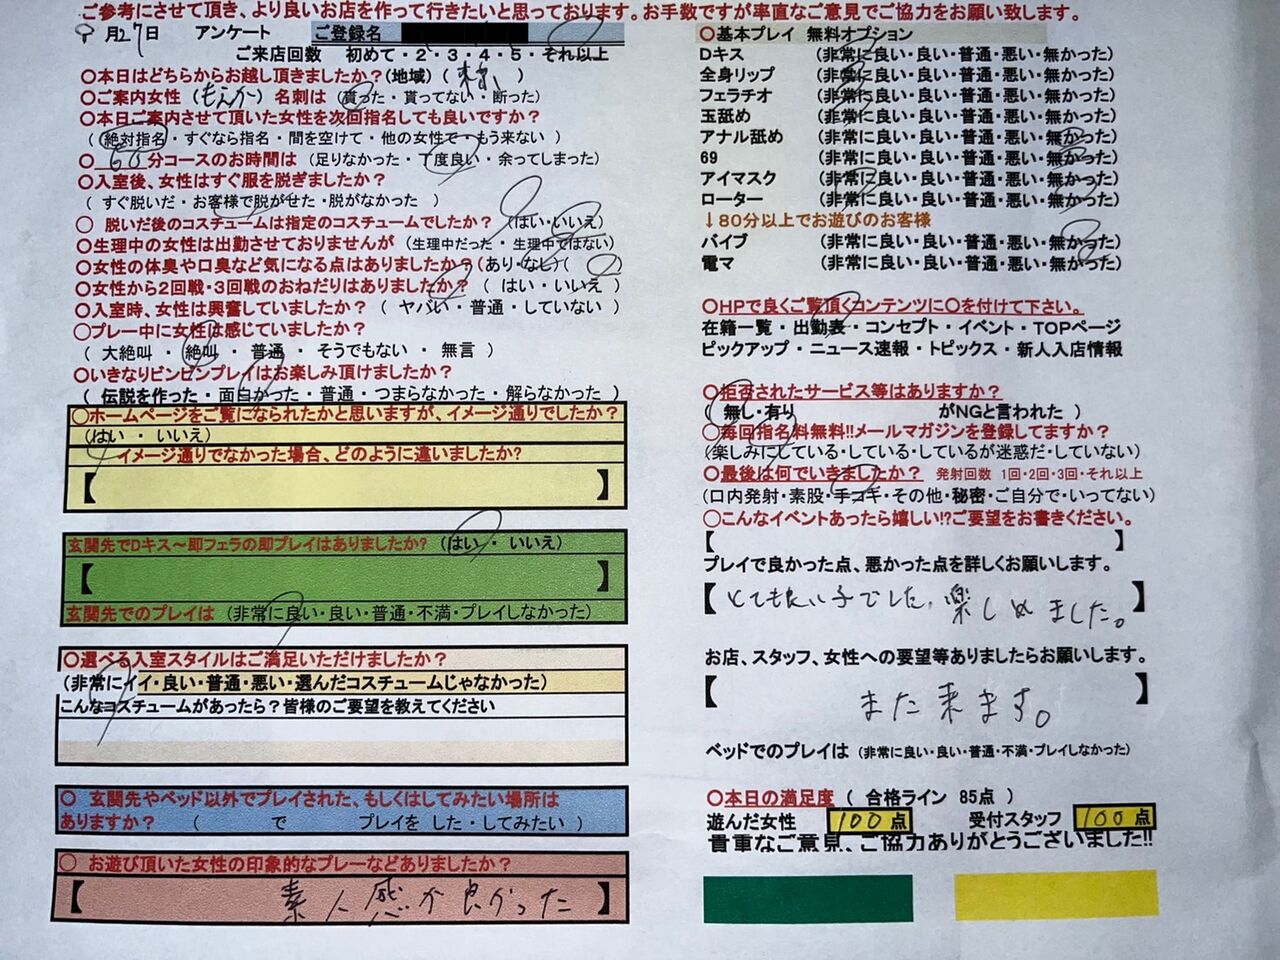 ご参考にさせて頂き、より良いお店を作って行きたいと思っております。お手数ですが率直なご意見でご協力をお願い致します。
月27日 アンケート ご登録名
ご来店回数 初めて・2・3・4・5・それ以上
〇本日はどちらからお越し頂きましたか?(地域)( )
〇ご案内女性 (もえか) 名刺は (貰った・貰ってない・断った)
〇本日ご案内させて頂いた女性を次回指名しても良いですか?
(絶対指名・すぐなら指名・間を空けて・他の女性で・もう来ない )
〇 60分コースのお時間は (足りなかった・丁度良い・余ってしまった)
〇入室後、女性はすぐ服を脱ぎましたか?
( すぐ脱いだ・お客様で脱がせた・脱がなかった )
〇 脱いだ後のコスチュームは指定のコスチュームでしたか? (はい・いいえ)
〇生理中の女性は出勤させておりませんが (生理中だった・生理中ではない)
〇女性の体臭や口臭など気になる点はありましたか?(あり・なし)( )
〇女性から2回戦・3回戦のおねだりはありましたか? ( はい・いいえ )
〇入室時、女性は興奮していましたか? ( ヤバい・普通・していない )
〇プレー中に女性は感じていましたか?
( 大絶叫 ・ 絶叫 ・ 普通 ・ そうでもない ・ 無言 )
〇いきなりビンビンプレイはお楽しみ頂けましたか?
( 伝説を作った・面白かった・普通・つまらなかった・解らなかった )
〇ホームページをご覧になられたかと思いますが、イメージ通りでしたか?
(はい ・ いいえ)
イメージ通りでなかった場合、どのように違いましたか?
【 】
玄関先でDキス〜即フェラの即プレイはありましたか? (はい ・ いいえ)
【 】
玄関先でのプレイは (非常に良い・良い・普通・不満・プレイしなかった)
〇選べる入室スタイルはご満足いただけましたか?
(非常にイイ・良い・普通・悪い・選んだコスチュームじゃなかった)
こんなコスチュームがあったら?皆様のご要望を教えてください
〇 玄関先やベッド以外でプレイされた、もしくはしてみたい場所は
ありますか? ( で プレイを した・してみたい )
〇 お遊び頂いた女性の印象的なプレーなどありましたか?
【 素人感が良かった 】
〇基本プレイ 無料オプション
Dキス (非常に良い・良い・普通・悪い・無かった)
全身リップ (非常に良い・良い・普通・悪い・無かった)
フェラチオ (非常に良い・良い・普通・悪い・無かった)
玉舐め (非常に良い・良い・普通・悪い・無かった)
アナル舐め (非常に良い・良い・普通・悪い・無かった)
69 (非常に良い・良い・普通・悪い・無かった)
アイマスク (非常に良い・良い・普通・悪い・無かった)
ローター (非常に良い・良い・普通・悪い・無かった)
↓80分以上でお遊びのお客様
バイブ (非常に良い・良い・普通・悪い・無かった)
電マ (非常に良い・良い・普通・悪い・無かった)
〇HPで良くご覧頂くコンテンツに〇を付けて下さい。
在籍一覧・出勤表・コンセプト・イベント・TOPページ
ピックアップ・ニュース速報・トピックス・新人入店情報
〇拒否されたサービス等はありますか?
( 無し・有り がNGと言われた )
〇毎回指名料無料!!メールマガジンを登録してますか?
(楽しみにしている・している・しているが迷惑だ・していない)
〇最後は何でいきましたか? 発射回数 1回・2回・3回・それ以上
(口内発射・素股・手コキ・その他・秘密・ご自分で・いってない)
〇こんなイベントあったら嬉しい!?ご要望をお書きください。
【 】
プレイで良かった点、悪かった点を詳しくお願いします。
【 とても良い子でした。楽しめました。 】
お店、スタッフ、女性への要望等ありましたらお願いします。
【 また来ます。 】
ベッドでのプレイは (非常に良い・良い・普通・不満・プレイしなかった)
〇本日の満足度 ( 合格ライン 85点 )
遊んだ女性 100点 受付スタッフ 100点
貴重なご意見、ご協力ありがとうございました!!